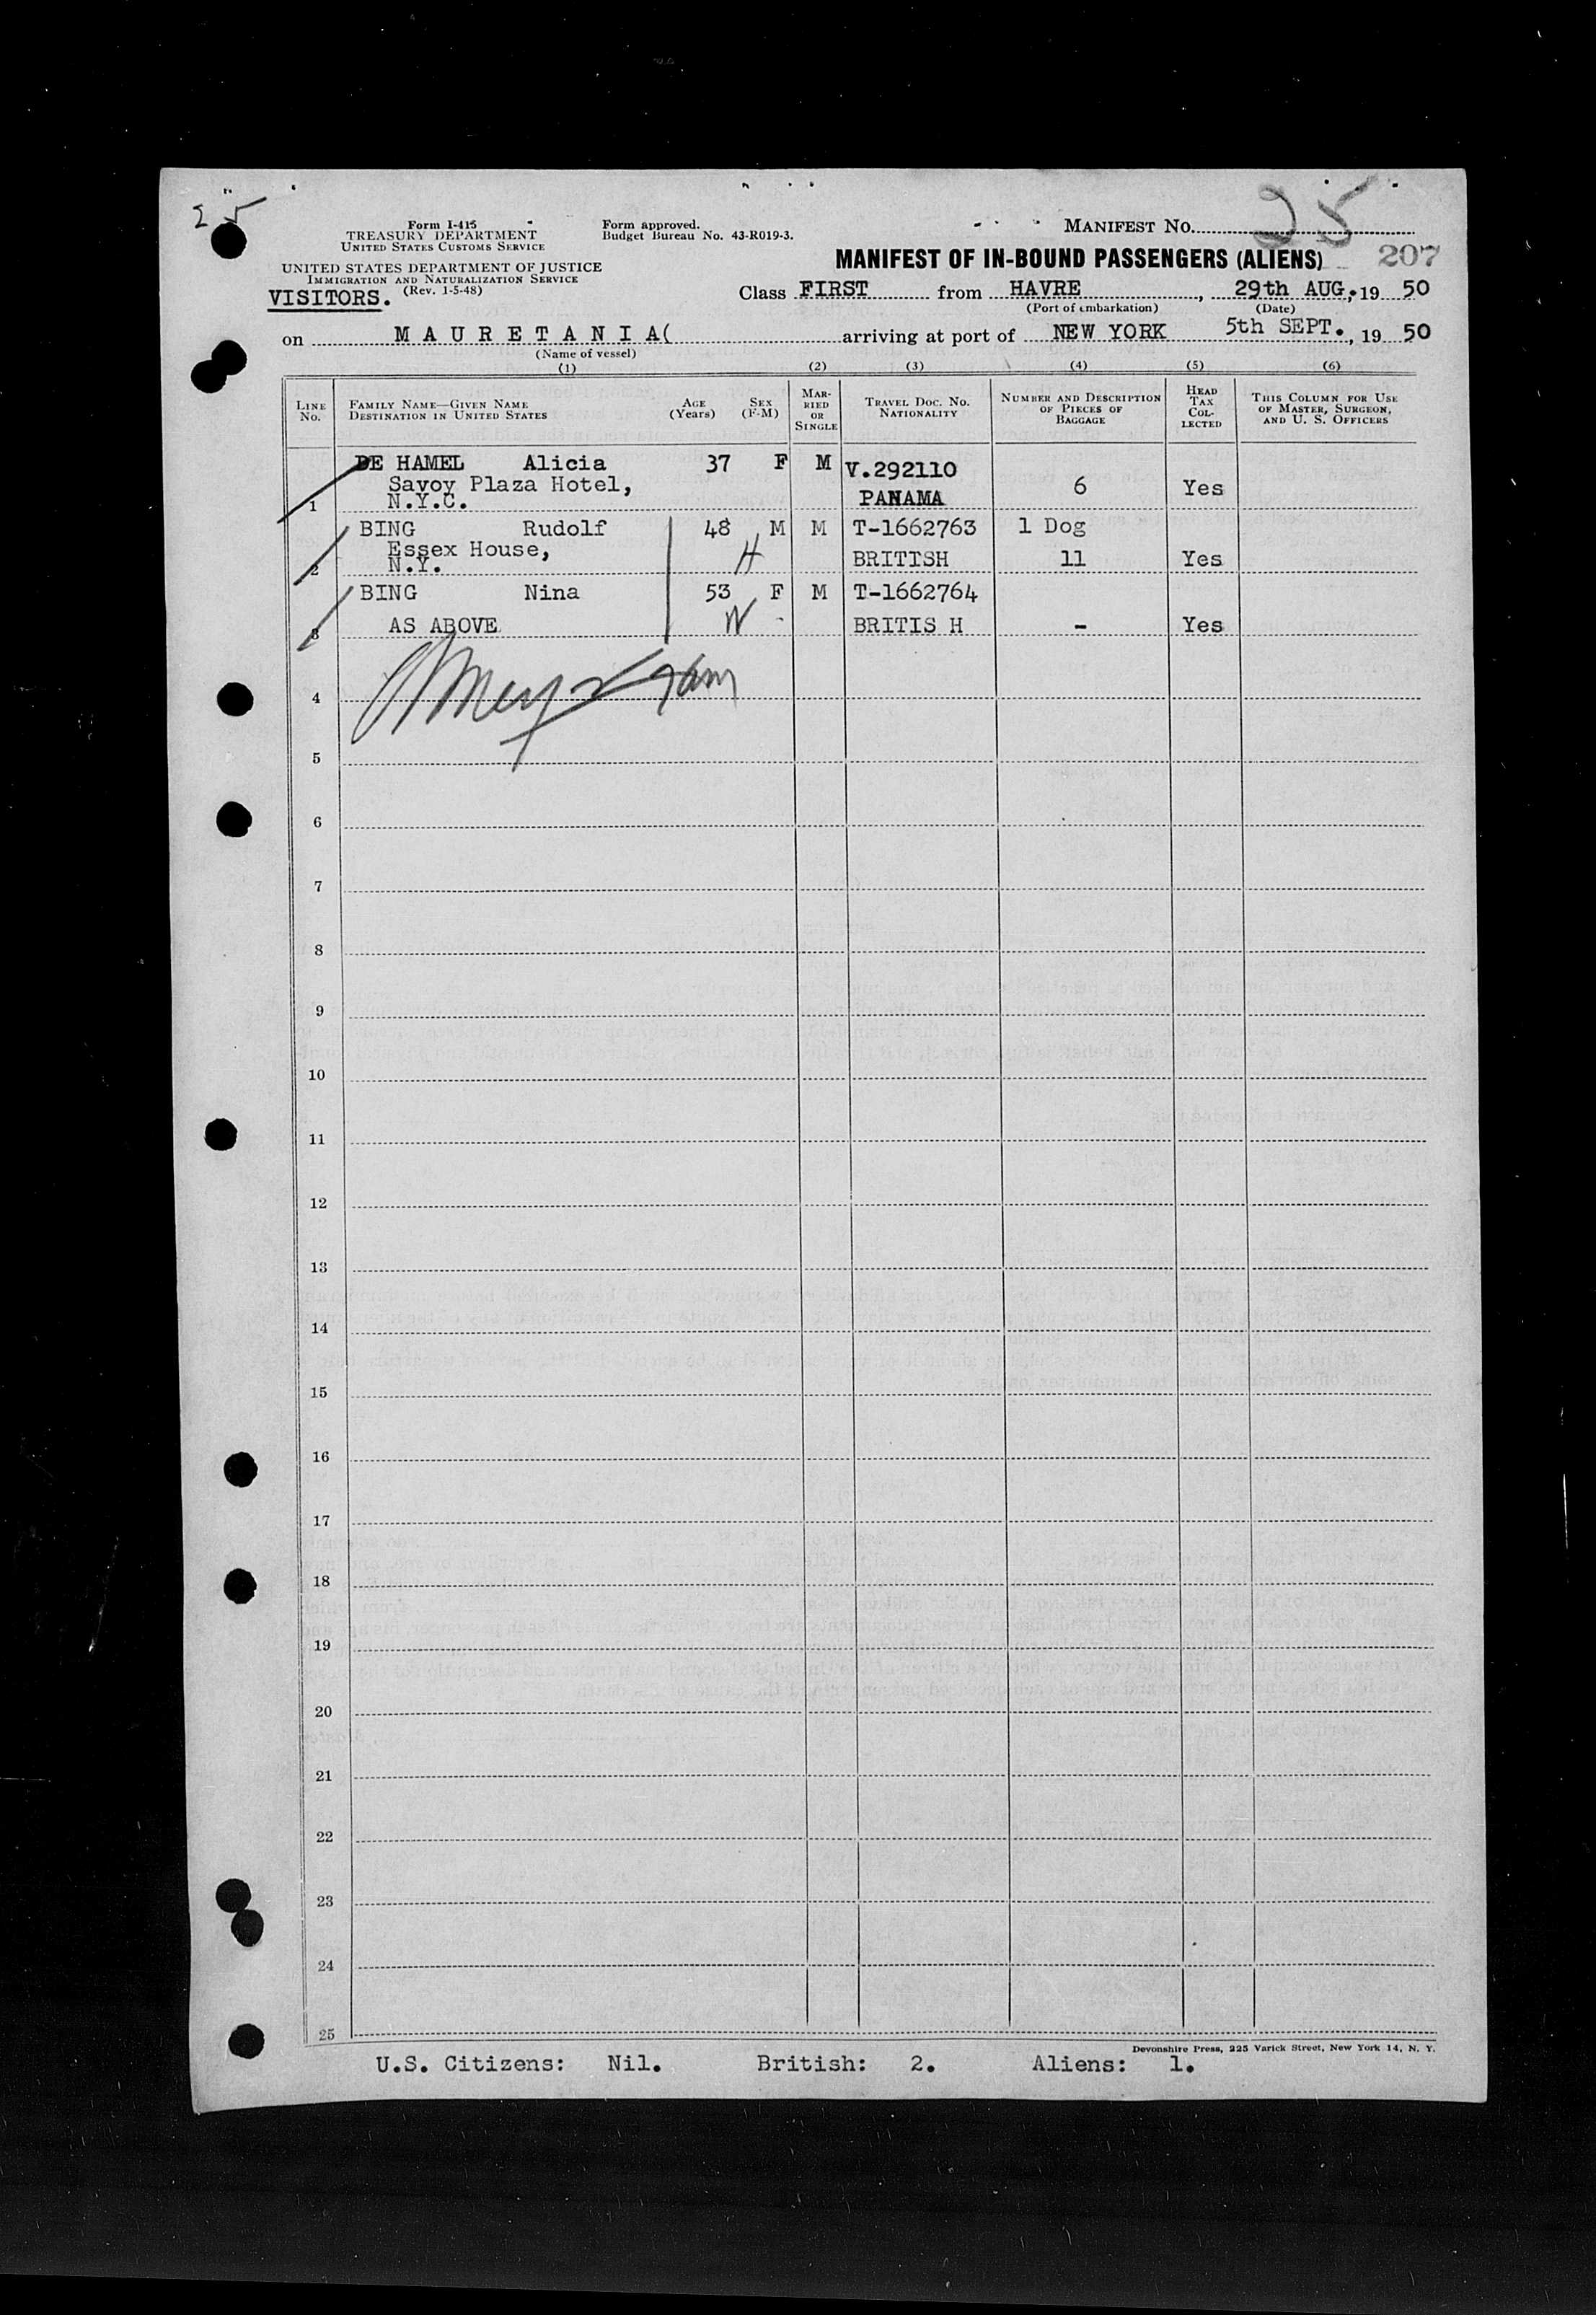 25
Form I-415
TREASURY DEPARTMENT
UNITED STATES CUSTOMS SERVICE
Form approved.
Budget Bureau No. 43-R019-3.
MANIFEST NO. 25
UNITED STATES DEPARTMENT OF JUSTICE
IMMIGRATION AND NATURALIZATION SERVICE
(Rev. 1-5-48)
VISITORS.
MANIFEST OF IN-BOUND PASSENGERS (ALIENS) 207
Class FIRST from HAVRE, 29th AUG, 19 50
(Port of embarkation) (Date)
on M A U R E T A N I A( arriving at port of NEW YORK 5th SEPT., 19 50
(Name of vessel)
(1) (2) (3) (4) (5) (6)
LINE No. FAMILY NAME—GIVEN NAME DESTINATION IN UNITED STATES AGE (Years) SEX (F-M) MARRIED OR SINGLE TRAVEL DOC. NO. NATIONALITY NUMBER AND DESCRIPTION OF PIECES OF BAGGAGE HEAD TAX COLLECTED THIS COLUMN FOR USE OF MASTER, SURGEON, AND U. S. OFFICERS
DE HAMEL Alicia 37 F M V.292110
Savoy Plaza Hotel,
1 N.Y.C. PANAMA 6 Yes
BING Rudolf 48 M M T-1662763 1 Dog
Essex House,
2 N.Y. H BRITISH 11 Yes
BING Nina 53 F M T-1662764
3 AS ABOVE W BRITIS H - Yes
4
5
6
7
8
9
10
11
12
13
14
15
16
17
18
19
20
21
22
23
24
25
Devonshire Press, 225 Varick Street, New York 14, N. Y.
U.S. Citizens: Nil. British: 2. Aliens: 1.